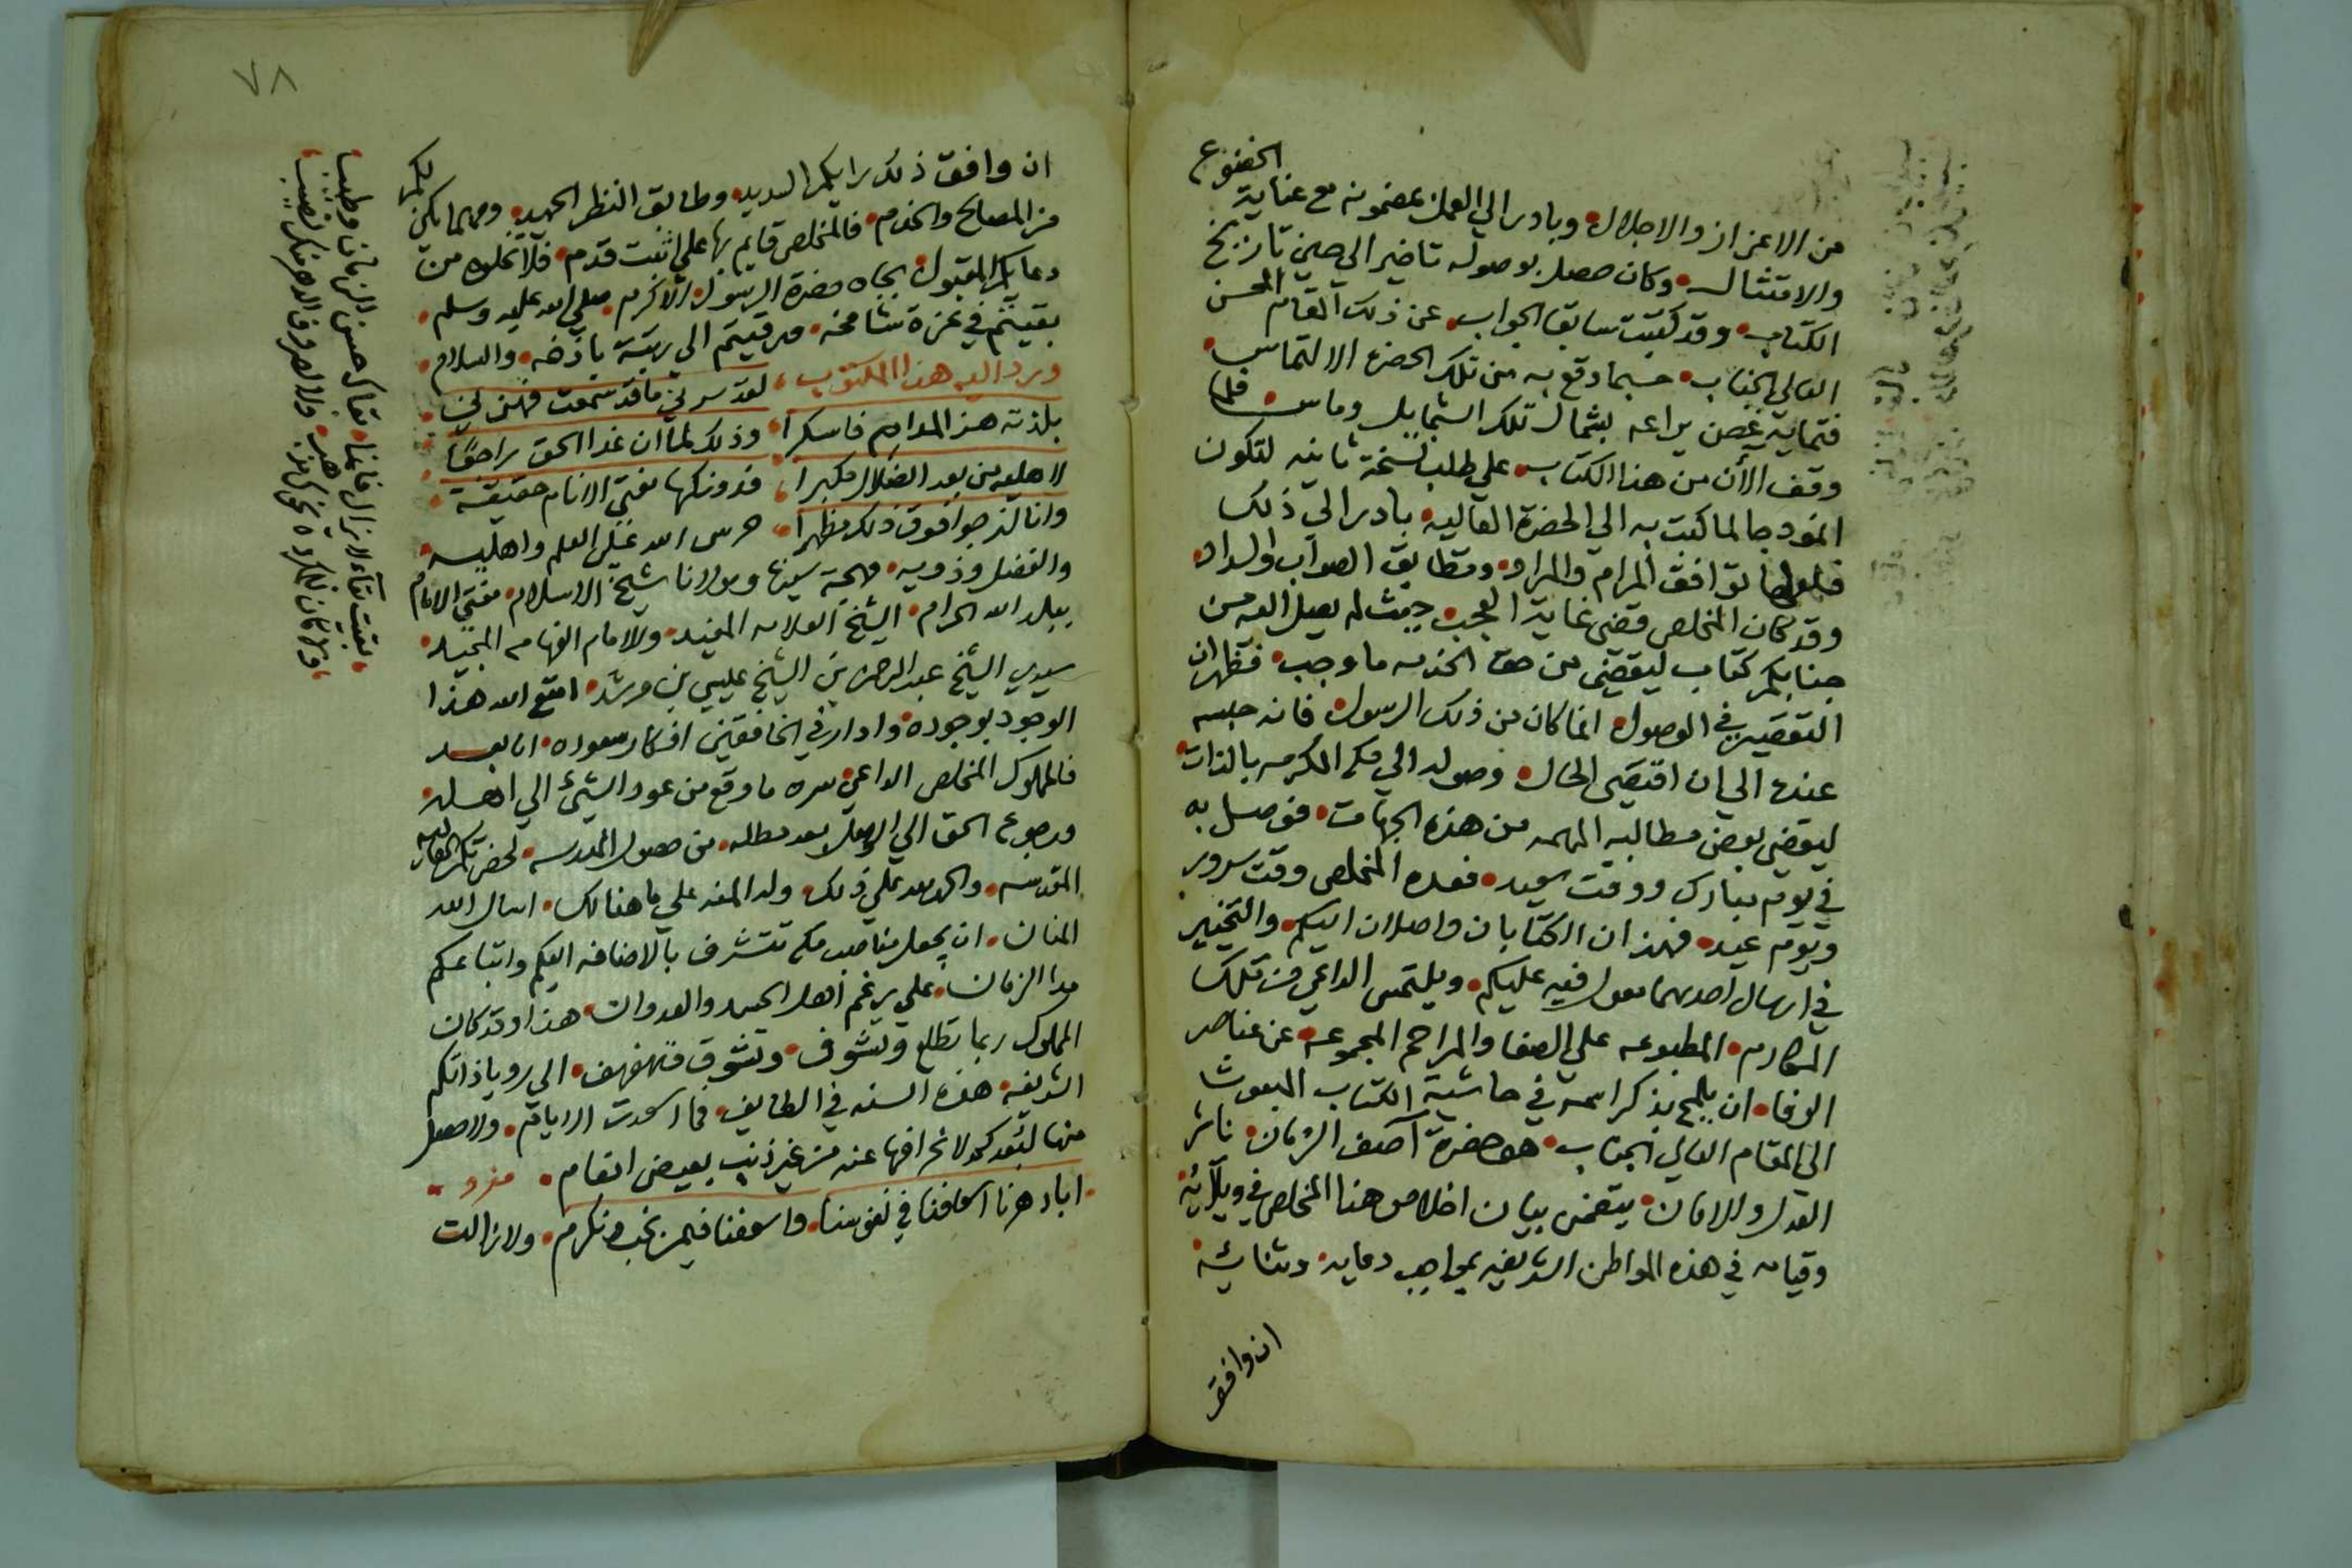 الخضوع
من الاعزاز والاجلال وبادر الي العمل بمضمونه مع غناية
والامتثال وكان حصل بوصوله تاخير الي حين تاريخ
الكتاب وقد كتبت سابقا الجواب عن ذلك المقام المحسن
العالي الجناب حسبما وقع به من تلك الحضره الالتماس
فتمايد غصن يراعه بشمال تلك الشمايل وماس فلما
وقف الأن من هذا الكتاب علي طلب نسخة ثانيه لتكون
انموذجا لما كتب به الي الحضرة العاليه بادر الي ذلك
فلعلها توافق المرام والمراد وتطابق الصواب والسداد
وقد كان المخلص قضي غاية العجب حيث لم يصل اليه من
جنابكم كتاب ليقضي من حق الخدمه ما وجب فظهر ان
التقصير في الوصول انما كان من ذلك الرسول فانه حبسه
عنده الي ان اقتضي الحال وصوله الي مكه المكرمه بالذات
ليقضي بعض مطالبه المهمه من هذه الجهات فوصل به
في يوم مبارك ووقت سعيد فعده المخلص وقت سرور
ويوم عيد فهذان الكتابان واصلان اليكم والتخيير
في ارسال احدهما معول فيه عليكم ويلتمس الداعي من تلك
المكارم المطبوعه علي الصفا والمراحم المجموعه عن عناصر
الوفا ان يلمح بذكر اسمه في حاشية الكتاب المبعوث
الي المقام العالي الجناب هو حضرة آصف الزمان ناشر
العدل والامان يتضمن بيان اخلاص هذا المخلص في ولآئه
وقيامه في هذه المواطن الشريفه بمواجب دعايه وثنائه
ان وافق
٧٨
ان وافق ذلك رايكم السديد وطابق النظر الحميد ومهما يكن لكم
من المصالح والخدم فالمخلص قايم بها علي اثبت قدم فلا تخلوه من
دعايكم المقبول بجاه حضرة الرسول الاكرم صلي الله عليه وسلم
بقيتم في عزة شامخه ورقيتم الي رتبة باذخه والسلام
ورد اليه هذا المكتوب لقد سرني ما قد سمعت فهزني
بلذته هز المدام فاسكرا وذلك لما ان غدا الحق راجعًا
لاهليه من بعد الضلال مكبرا فدونكها مفتي الانام حقيقة
وانا لنرجوا فوق ذلك مظهرا حرس الله علي العلم واهليه
والفضل وذويه مهجة سيدنا ومولانا شيخ الاسلام مفتي الانام
ببلد الله الحرام الشيخ العلامه المفيد والامام الفهامه المجيد
سيدي الشيخ عبد الرحمن بن الشيخ عيسي بن مرشد امتع الله هذا
الوجود بوجوده وادار في الخافقين افلاك سعوده اما بعد
فالمملوك المخلص الداعي سره ما وقع من عود الشئ الي اهله
ورجوع الحق الي اهله بعد مطله من حصول المدرسه لحضرتكم العاليه
المقدسه والحمد لله علي ذلك وله المنه علي ما هنالك اسال الله
المنان ان يجعل مناصب مكه تتشرف بالاضافه اليكم واتباعكم
مدا الزمان علي رغم اهل الحسد والعدوان هذا وقد كان
المملوك ربما تطلع وتشوف وتشوق وتلهف الي رويا ذاتكم
الشريفه هذه السنه في الطايف فما اسعدت الايام ولا حصل
منها لبعدكم لانحرافها عنه من غير ذنب بعيض انعام مفرد
ابا دهرنا اسعافنا في نفوسنا واسعفنا فيمن نحب ونكرم ولا زالت
بقيت بقآء لا يزال فانما بقاك حسن للزمان وطيب
ولا كان للمكروه نحوك مذهب ولا لصروف الدهر منك نصيب